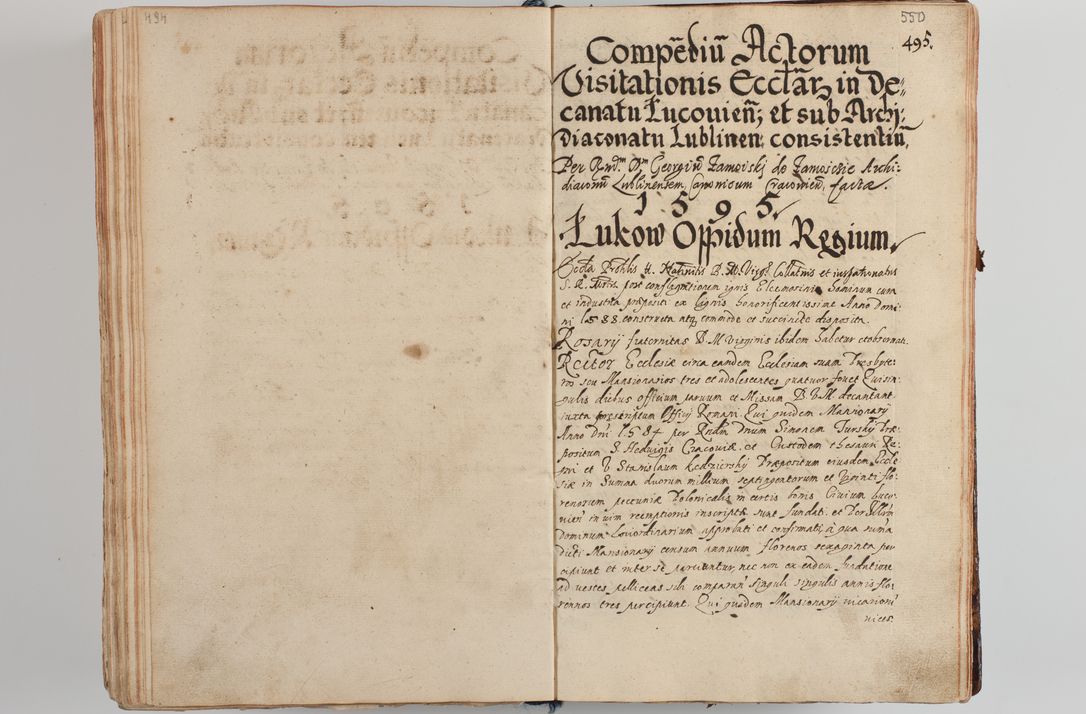 494
550
495.
Compēdiū Actorum
Visitationis Eccłar, in De,,
canatu Łucouieñ; et sub Archi:
Diaconatu Lublinen consistentiū,
Per Rnd. D. Georgiū Zamoiski de Zamoscie Archi:
diaconū Lublinensem, Canonicum Cracouień, factæ.
1595.
Łukow Oppidum Regium.
Eccła Prohlis tt. Natiuitis B. M. Virg. Collatnis et iuspatronatus
S. R. Mtis post conflagrationem ignis Elemosinis hominum cura
et industria præpositi ex lignis honorificentissime Anno Domi:
ni 1588. constructa atq; commode et succincte disposita.
Rosarij fraternitas B. M. Virginis ibidem habetur et obseruat.
Rector Ecclesiæ circa eandem Ecclesiam suam Presbyte:
ros seu Mansionarios tres et adolescentes quatuor fouet Qui sin:
gulis diebus officium paruum et Missam B. V. M. decantant
iuxta præscriptum Officij Romani. Qui quidem Mansionarij
Anno Dni 1584 per Rndm Dnum Simonem Turskij Præ:
positum S. Hedwigis Cracouiæ et Custodem thesauri Re:
gni et V. Stanislaum Kedzierskij Præpositum eiusdem Eccle
siæ in Summa duorum millium septingentorum et Viginti flo:
renorum pecuniæ Polonicalis in certis bonis Ciuium Luco:
uien in uim reemptionis inscriptæ sunt fundati. et Per Illrm
dominum Loci ordinarium approbati et confirmati, à qua suma
dicti Mansionarij censum annuum florenos sexaginta per
cipiunt et inter se partiuntur, nec non ex eadem fundatione
ad uestes pelliceas sibi comparan singuli singulis annis flo:
rennos tres percipiunt. Qui quidem Mansionarij uicarioru
uices.